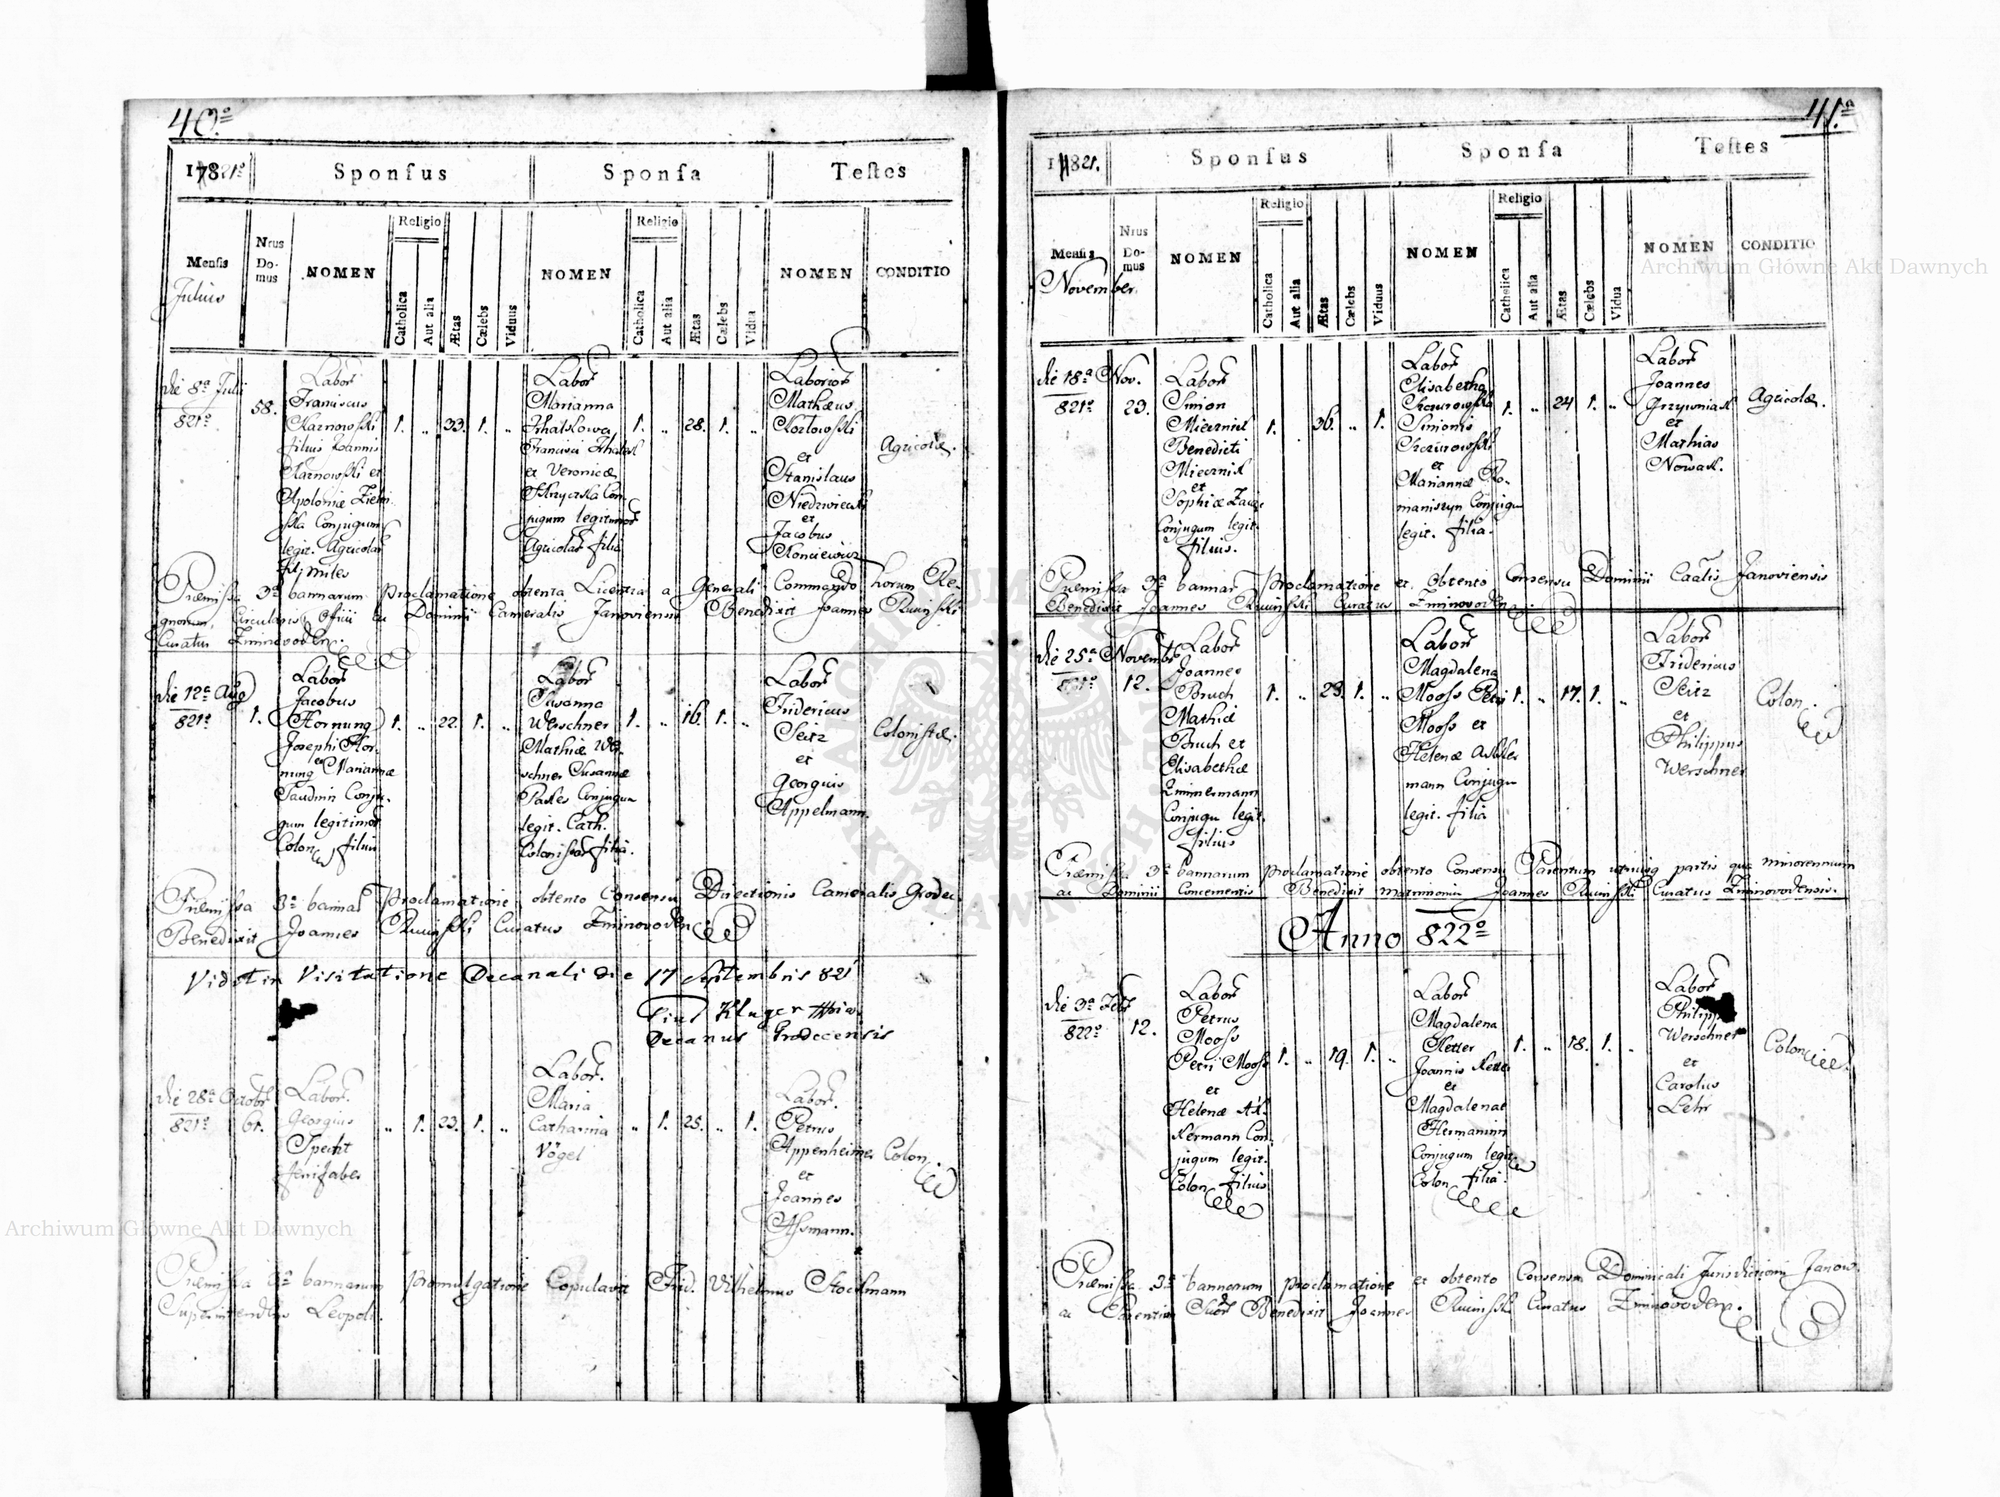 40.º
17821º
Sponsus
Sponsa
Testes
Mensis
Julius
Nrus
Do-
mus
NOMEN
Religio
Catholica
Aut alia
Ætas
Cælebs
Viduus
NOMEN
Religio
Catholica
Aut alia
Ætas
Cælebs
Vidua
NOMEN
CONDITIO
die 8ª Julii
821º
58.
Labor
Franciscus
Karnowski
filius Joannis
Karnowski et
Apoloniæ
Conjugum
legit. Agricolar
miles
1.
„
33.
1.
„
Labor
Marianna
Francisci
et Veronicæ
Con-
jugum legitimor
Agricolar filia
1.
„
28.
1.
„
Laborios
Mathæus
Kozlowski
et
Stanislaus
Niedzwiecki
et
Jacobus
Agricolæ.
Præmissa 3ª bannarum Proclamatione obtenta Licentia a Generali Commando horum Re-
gnorum, Circularis Officii Dominii Cameralis Janoviensis Benedixit Joannes
Curatus Zimnovoden.
die 12ª Aug
821º
1.
Labor
Jacobus
Hornung
Josephi Hor-
nung et Mariannæ
Conju-
gum legitimor
Colon filius
1.
„
22.
1.
„
Labor
Susanna
Werschner
Mathiæ Wer-
schner Susannæ
Conjugum
legit. Cath.
Colonistar filia.
1.
„
16.
1.
„
Labor
Fridericus
Seitz
et
Georgius
Appelmann.
Colonistæ.
Præmissa 3ª bannar Proclamatione obtento Consensu Directionis Cameralis Grodec
Benedixit Joannes Curatus Zimnovoden
Vidi in Visitatione Decanali die 17 Septembris 821
Kluger
Decanus Grodecensis
die 28ª Octobr
821º
61.
Labor.
Georgius
Specht
„
1.
23.
1.
„
Labor.
Maria
Catharina
Vögel
„
1.
25.
„
1.
Labor.
Petrus
Appenheimer
et
Joannes
Assmann.
Colon.
Præmissa 3ª bannarum promulgatione Copulavit Frid. Vilhelmus Stockmann
Superintendens Leopoli.
41.ª
17821.
Sponsus
Sponsa
Testes
Mensis
November
Nrus
Do-
mus
NOMEN
Religio
Catholica
Aut alia
Ætas
Cælebs
Viduus
NOMEN
Religio
Catholica
Aut alia
Ætas
Cælebs
Vidua
NOMEN
CONDITIO
die 18ª Nov.
821º
29.
Labor
Simon
Miecznik
Benedicti
Miecznik
et
Sophiæ
Conjugum legit.
filius.
1.
36.
„
1.
Labor
Elisabetha
Simonis
et
Mariannæ Ro-
maniszyn Conjugum
legit. filia.
1.
„
24
1.
„
Labor
Joannes
Grzywniak
et
Mathias
Nowak.
Agricolæ.
Præmissa 3ª bannar Proclamatione et Obtento Consensu Dominii Caalis Janoviensis
Benedixit Joannes Curatus Zimnovoden
die 25ª Novembr
821º
12.
Labor
Joannes
Bruch
Mathiæ
Bruch et
Elisabethæ
Zimmermann
Conjugu legit.
filius
1.
„
23.
1.
„
Labor
Magdalena
Mooss Petri
Mooss et
Helenæ
mann Conjugu
legit. filia
1.
„
17.
1.
„
Labor
Fridericus
Seitz
et
Philippus
Werschner
Colon.
Præmissa 3ª bannarum Proclamatione obtento Consensu Parentum utriusq partis qua minorennium
ac Dominii Concernentis Benedixit matrimonium Joannes Curatus Zimnovodensis.
Anno 822º
die 3ª Febr
822º
12.
Labor
Petrus
Mooss
Petri Mooss
et
Helenæ
Con-
jugum legit.
Colon filius
1.
„
19.
1.
„
Labor
Magdalena
Ketter
Joannis Ketter
et
Magdalenæ
Hermanin
Conjugum legit
Colon filia.
1.
„
18.
1.
„
Labor
Philippus
Werschner
et
Carolus
Lehr
Colon
Præmissa 3ª bannarum proclamatione et obtento Consensu Dominicali Jurisdictionis Janow.
ac Parentum Benedixit Joannes Curatus Zimnovoden.
Archiwum Główne Akt Dawnych
Archiwum Główne Akt Dawnych